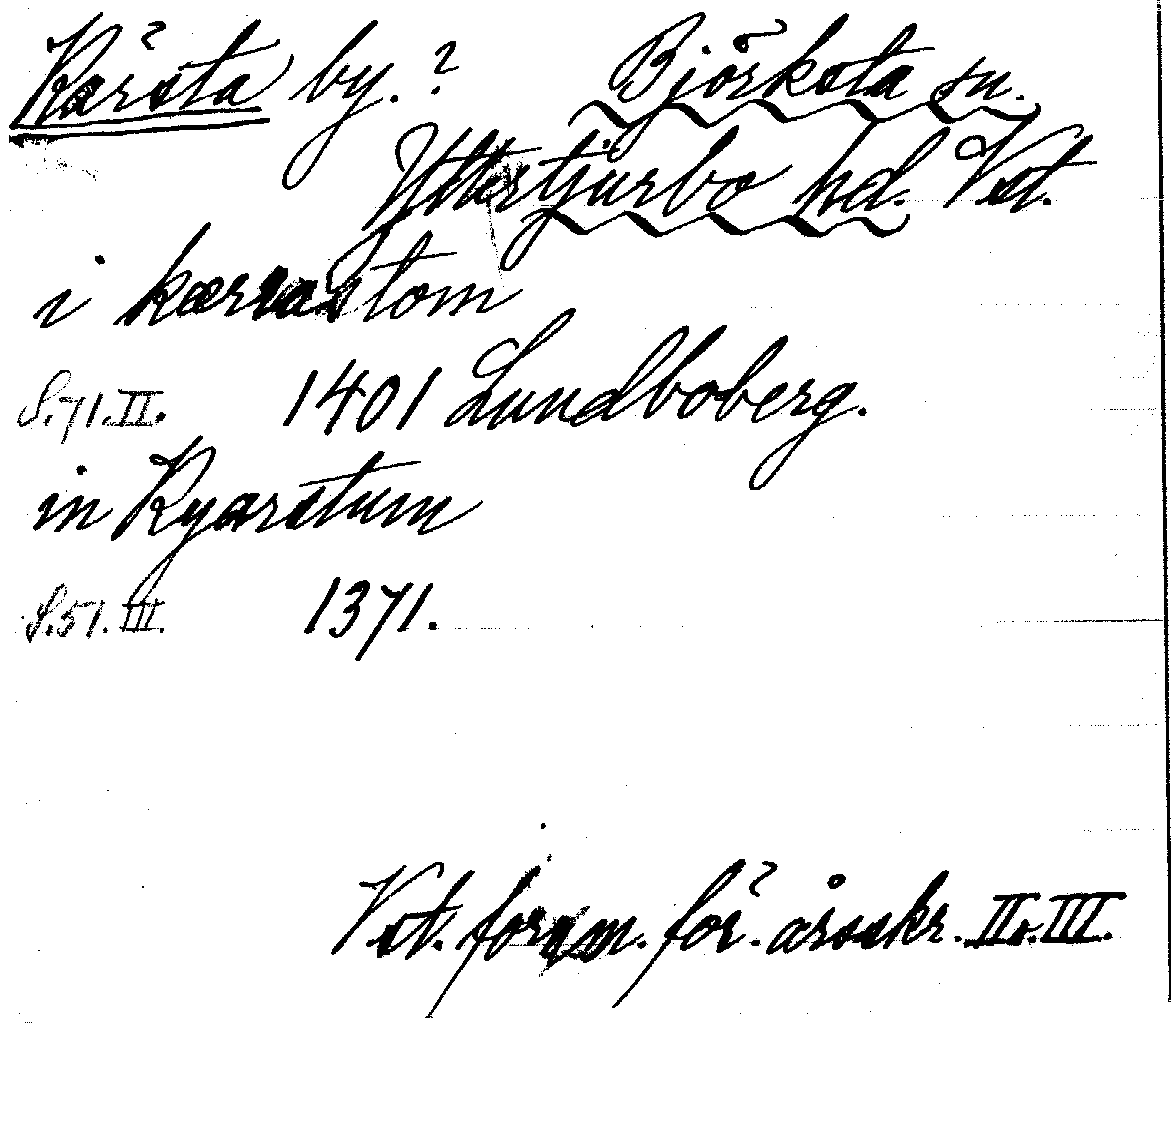 Kärsta by. ? Björksta sn.
Yttertjurbo hd. Vst.
i kærrastom
S.71.II. 1401 Lundboberg.
in Kyærstum
S.51.III. 1371.
Vst. fornm. för. årsskr. II o. III.